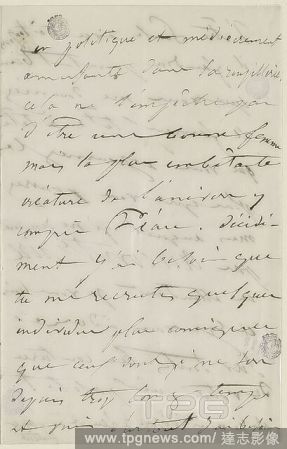 en politique et médiocrement
amusants dans la
cela ne l'empêche pas
d'être une bonne femme
mais la plus embêtante
créature de l'univers y
compris Fléau. décidé-
ment j'ai besoin que
tu me recrutes quelques
individus plus comiques
que ceux dont je me
depuis trop long temps
et puis
TPG
www.tpgnews.com / 達志影像